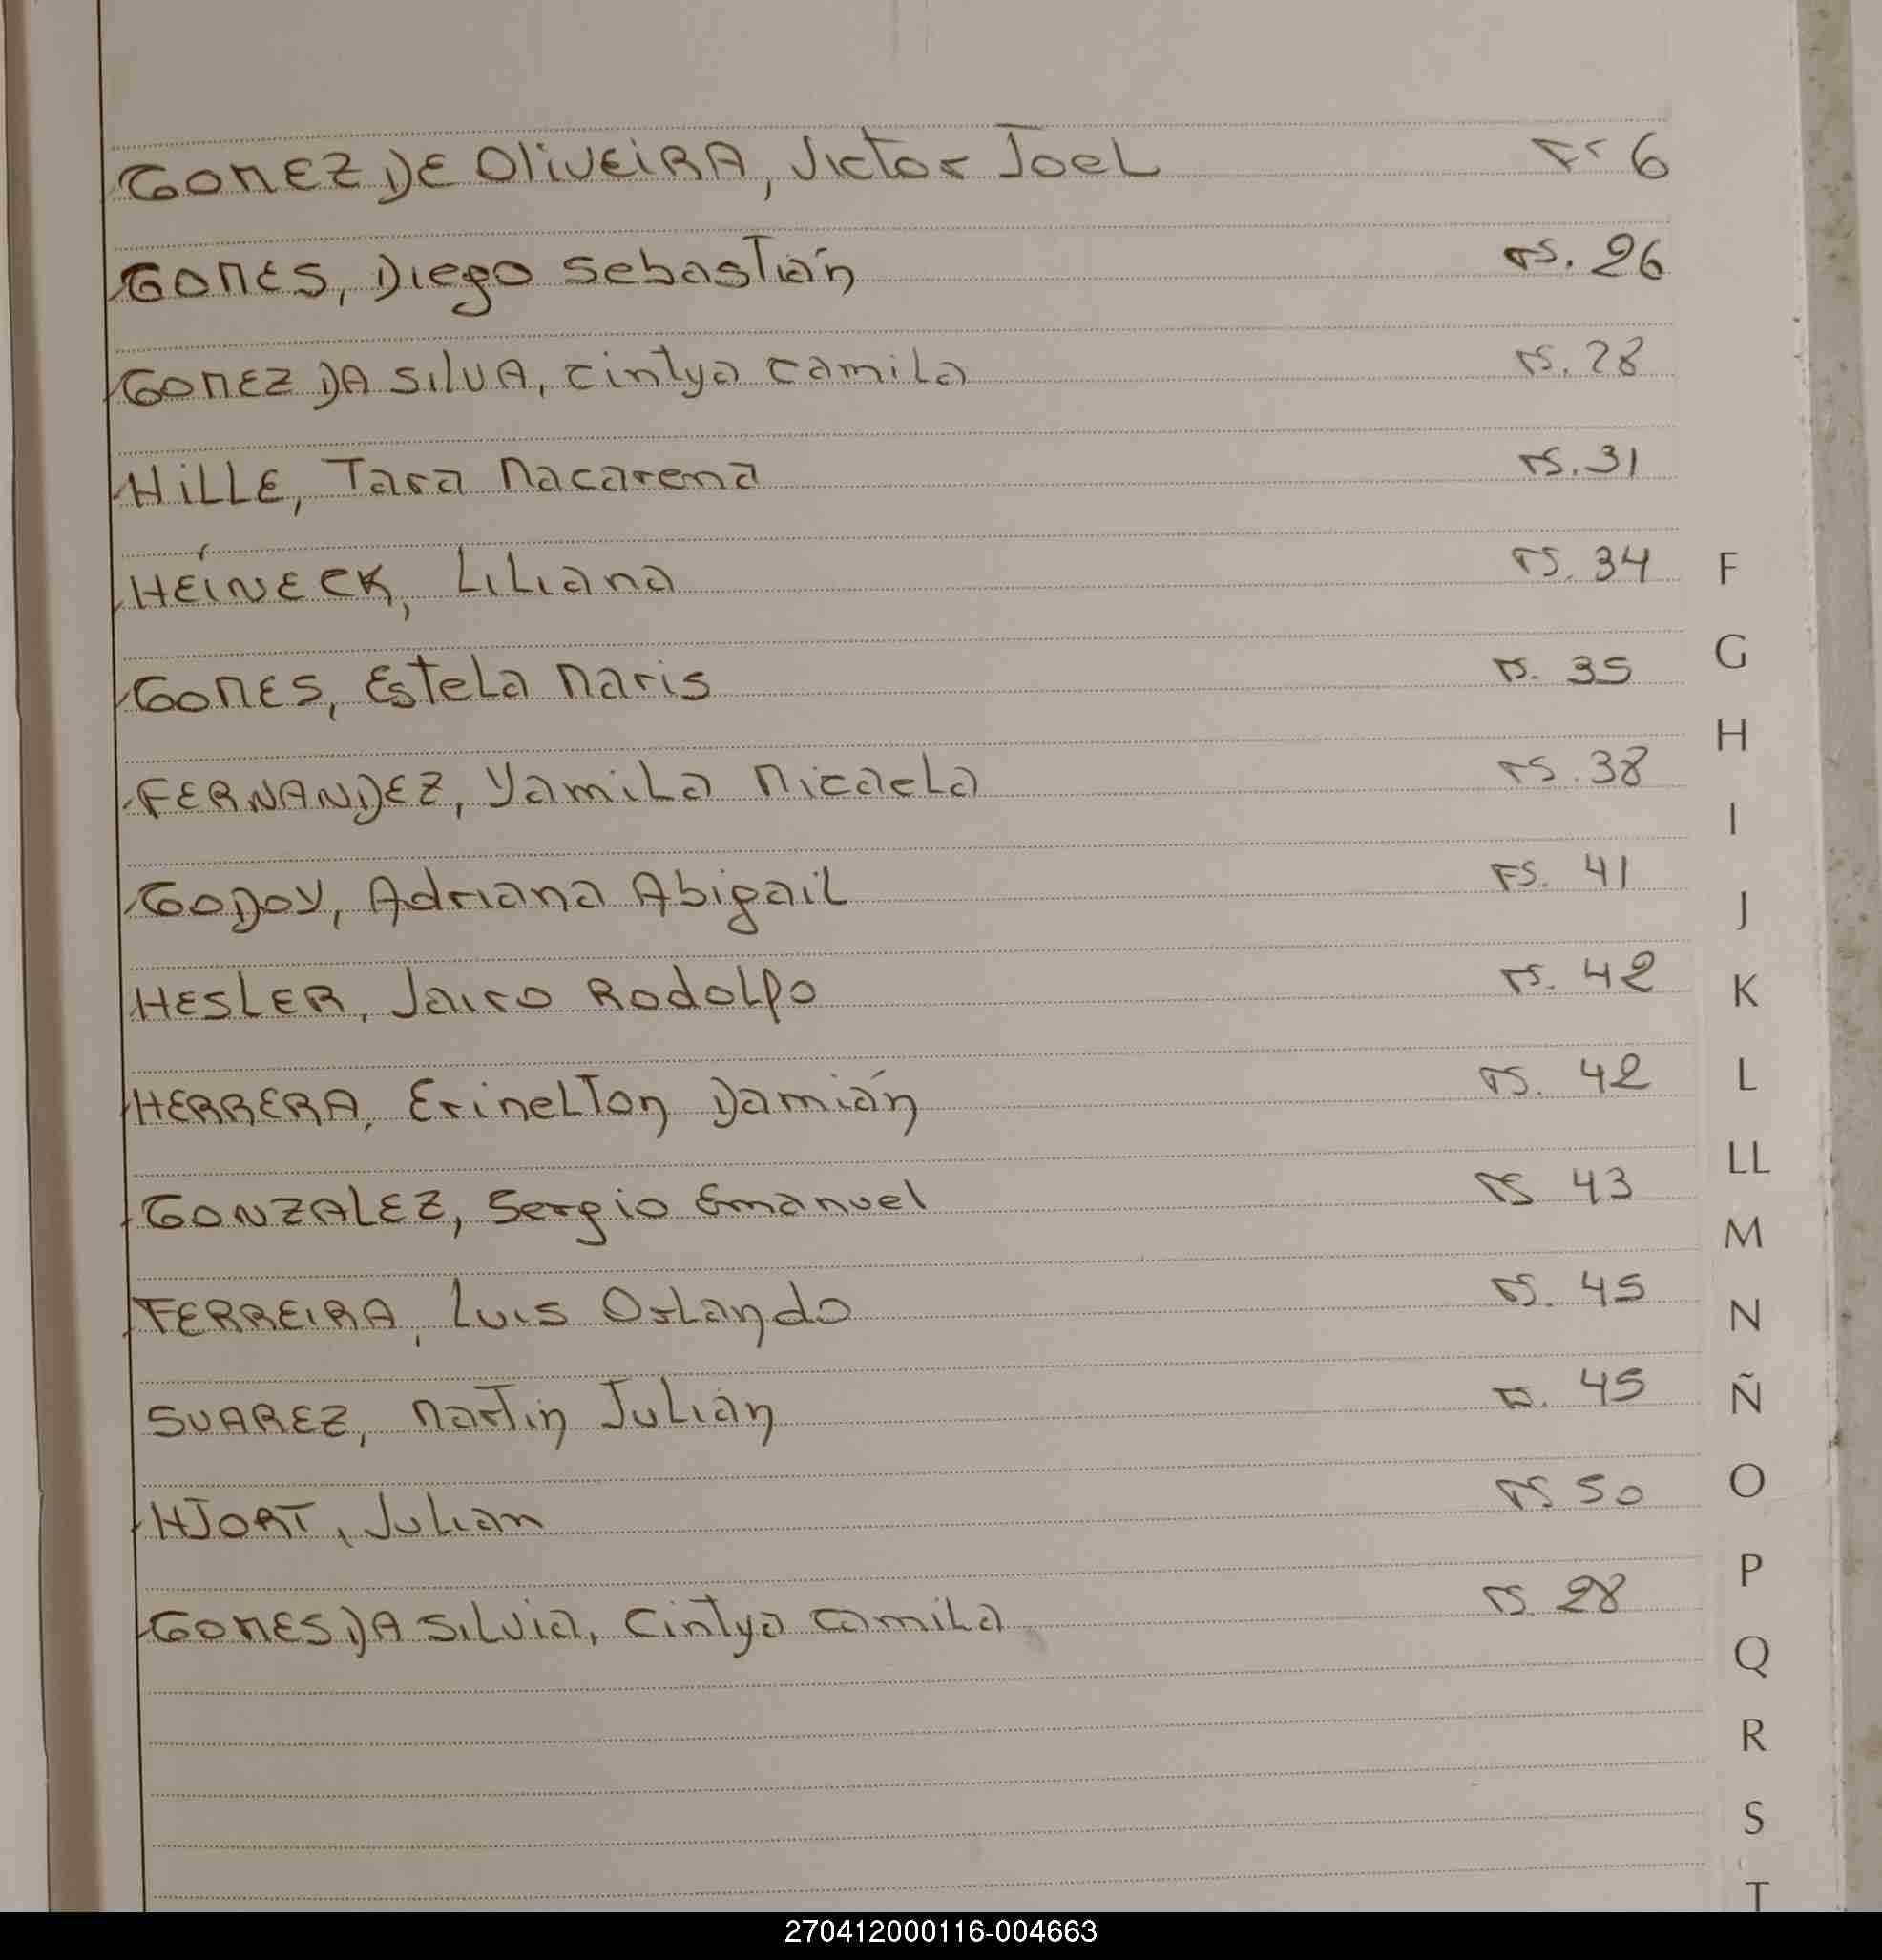 GOMEZ DE OLIVEIRA, Victor Joel Fs 6
GOMES, Diego Sebastián Fs. 26
GOMEZ DA SILVA, Cintya Camila Fs. 28
HILLE, Tara Macarena Fs. 31
HEÍNECK, Liliana Fs. 34
GOMES, Estela Maris Fs. 35
FERNANDEZ, Yamila Micaela Fs. 38
GODOY, Adriana Abigail Fs. 41
HESLER, Jairo Rodolfo Fs. 42
HERRERA, Erinelton Damián Fs. 42
GONZALEZ, Sergio Emanuel Fs 43
FERREIRA, Luis Orlando Fs. 45
SUAREZ, Martin Julián Fs. 45
HJORT, Julian Fs 50
GOMES DA SILVIA, Cintya Camila Fs. 28
F
G
H
I
J
K
L
LL
M
N
Ñ
O
P
Q
R
S
T
270412000116-004663